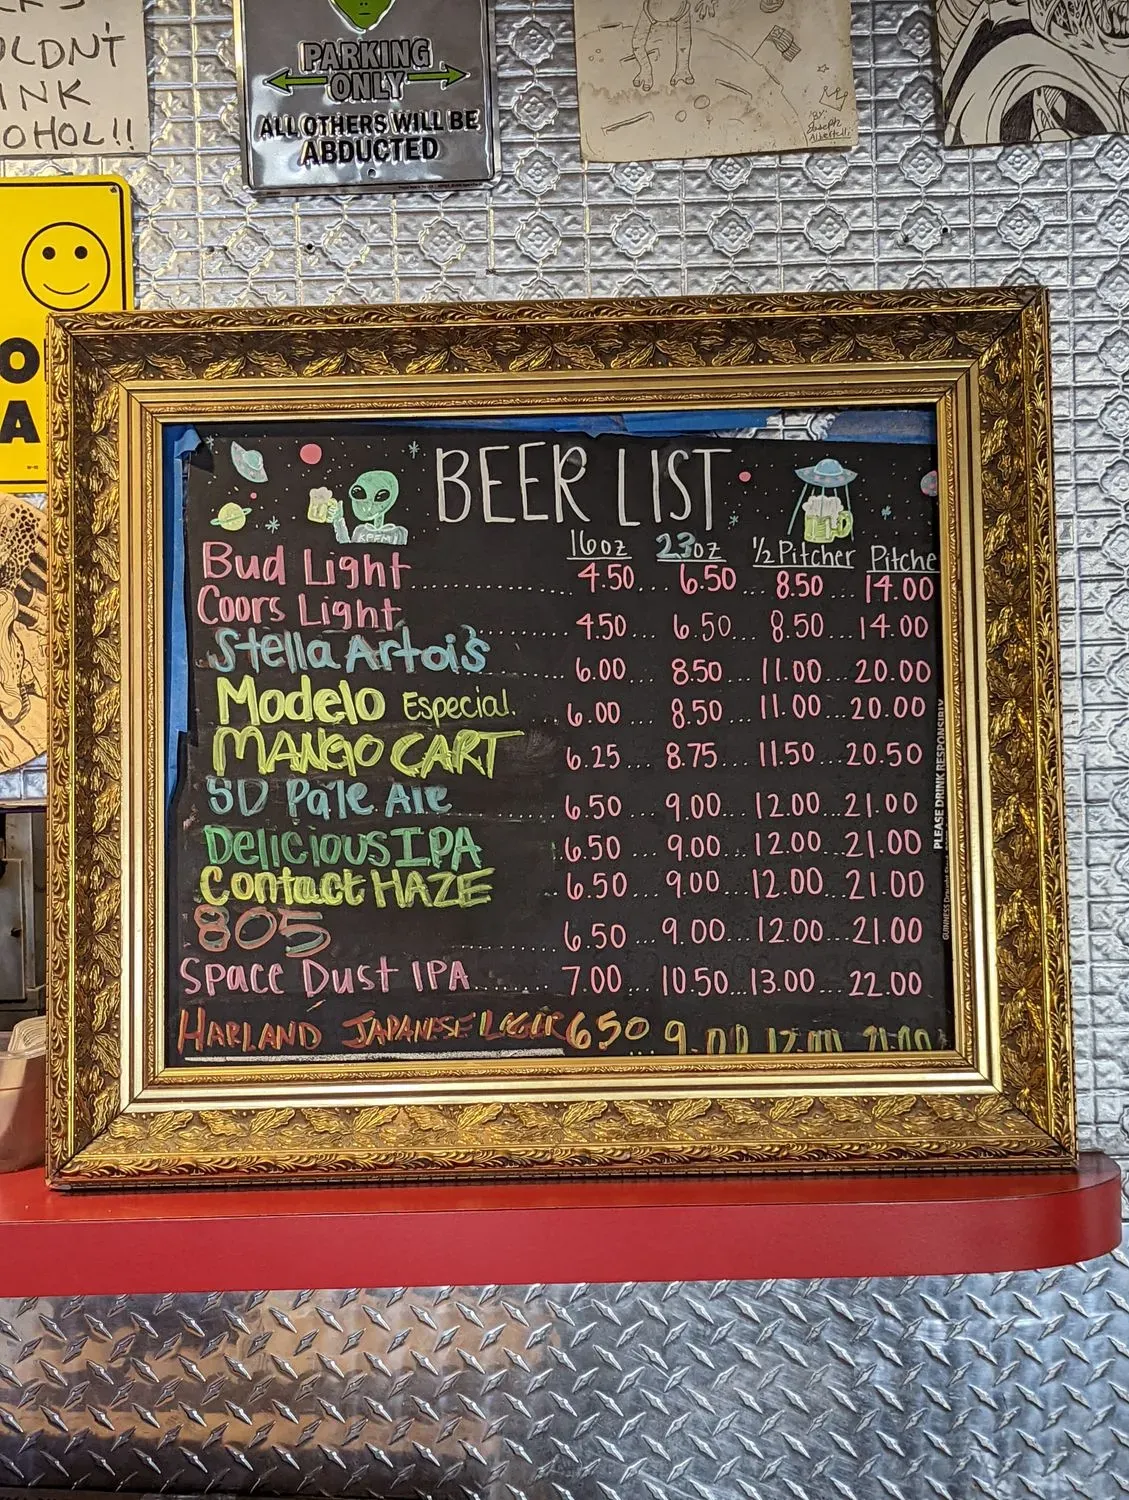 OLDN'T
INK
OHOL!!
PARKING
ONLY
ALL OTHERS WILL BE
ABDUCTED
BY
Joseph
O
A
BEER LIST
16oz 23oz 1/2 Pitcher Pitche
Bud Light 4.50 6.50 8.50 14.00
Coors Light 4.50 6.50 8.50 14.00
Stella Artois 6.00 8.50 11.00 20.00
Modelo Especial 6.00 8.50 11.00 20.00
MANGO CART 6.25 8.75 11.50 20.50
SD Pale Ale 6.50 9.00 12.00 21.00
Delicious IPA 6.50 9.00 12.00 21.00
Contact HAZE 6.50 9.00 12.00 21.00
805 6.50 9.00 12.00 21.00
Space Dust IPA 7.00 10.50 13.00 22.00
HARLAND JAPANESE LAGER 650 9.00 12.00 21.00
PLEASE DRINK RESPONSIBLY
GUINNESS Draught